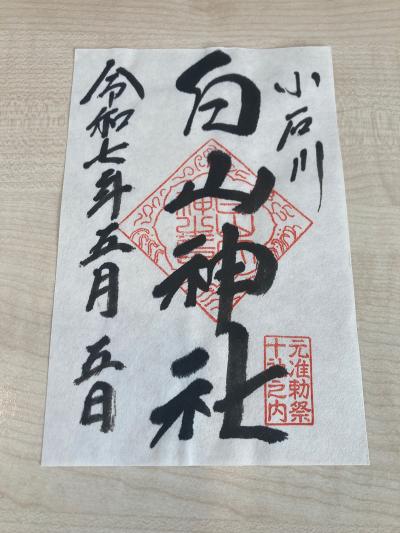 小石川
白山神社
令和七年五月五日
元准勅祭
十社之内